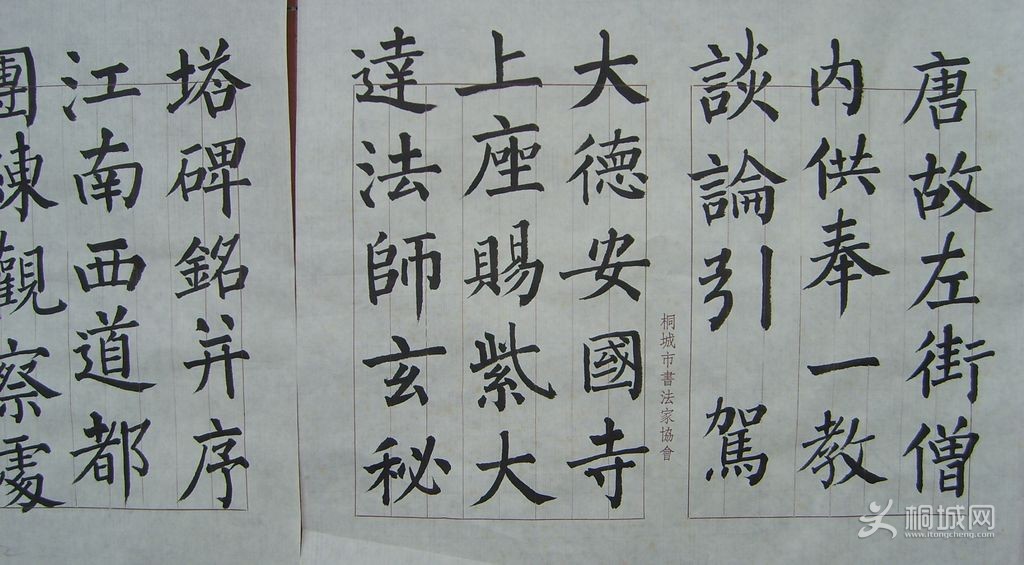 唐故左街僧
内供奉一教
談論引駕
大德安國寺
上座賜紫大
達法師玄秘
塔碑銘并序
江南西道都
團練觀察處
桐城市書法家協會
桐城网
www.itongcheng.com